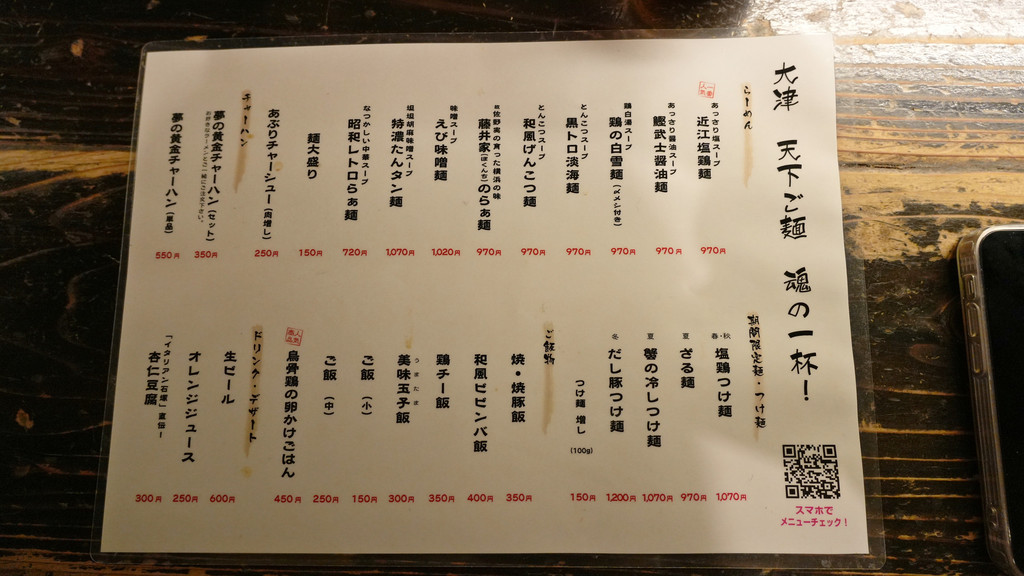 大津 天下ご麺 魂の一杯!
らーめん
人気一番
あっさり塩スープ
近江塩鶏麺
970円
あっさり醤油スープ
鰹武士醤油麺
970円
鶏白湯スープ
鶏の白雪麺(〆メシ付き)
970円
とんこつスープ
黒トロ淡海麺
970円
とんこつスープ
和風げんこつ麺
970円
佐野実の育った横浜の味
藤井家(ぼくんち)のらぁ麺
970円
味噌スープ
えび味噌麺
1,020円
坦坦胡麻味噌スープ
特濃たんタン麺
1,070円
なつかしい中華スープ
昭和レトロらぁ麺
720円
麺大盛り
150円
あぶりチャーシュー(肉増し)
250円
チャーハン
夢の黄金チャーハン(セット)
350円
夢の黄金チャーハン(単品)
550円
期間限定麺・つけ麺
春・秋
塩鶏つけ麺
1,070円
夏
ざる麺
970円
夏
蟹の冷しつけ麺
1,070円
冬
だし豚つけ麺
1,200円
つけ麺 増し
(100g)
150円
ご飯物
焼・焼豚飯
350円
和風ビビンバ飯
400円
鶏チー飯
350円
うまたま
美味玉子飯
300円
ご飯(小)
150円
ご飯(中)
250円
烏骨鶏の卵かけごはん
450円
ドリンク・デザート
生ビール
600円
オレンジジュース
250円
「イタリアン石塚」直伝!
杏仁豆腐
300円
スマホで
メニューチェック!